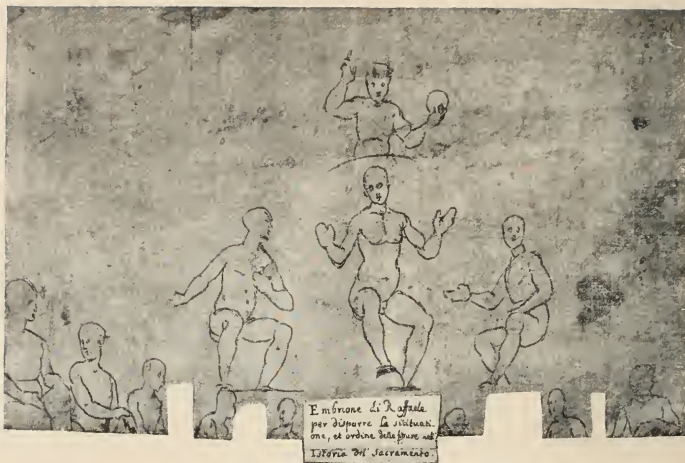 Embrione di Raffaele
per disporre La situati
one, et ordine delle figure nell
Istoria del Sacramento.